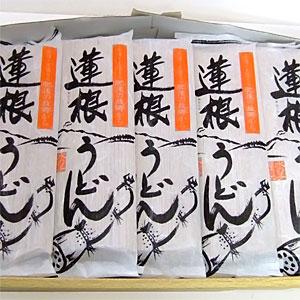 蓮根
うどん
蓮根
うどん
蓮根
うどん
蓮根
うどん
蓮根
うどん